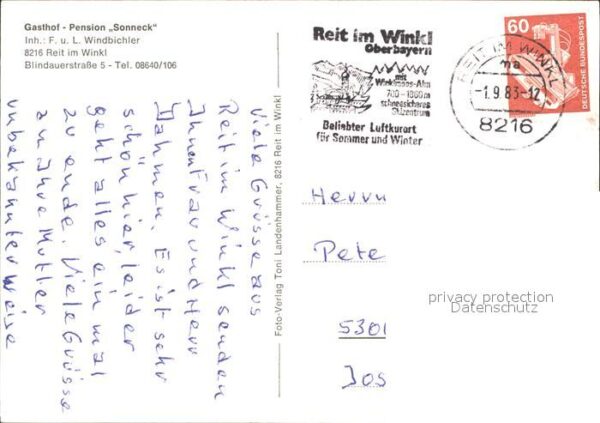 Gasthof - Pension „Sonneck"
Inh.: F. u. L. Windbichler
8216 Reit im Winkl
Blindauerstraße 5 - Tel. 08640/106
Viele Grüsse aus
Reit im Winkl senden
Ihnen Frau und Herr
Dahmen. Es ist sehr
schön hier, leider
geht alles ein mal
zu ende. Viele Grüsse
an Ihre Mutter
unbekannter weise
Foto-Verlag Toni Landenhammer, 8216 Reit im Winkl
Reit im Winkl
Oberbayern
mit
Winklmoos-Alm
700 - 1800 m
schneesicheres
Skizentrum
Beliebter Luftkurort
für Sommer und Winter
REIT IM WINKL
ma
-1.9.83-12
8216
60
DEUTSCHE BUNDESPOST
Herrn
Pete
5301
Jos
privacy protection
Datenschutz